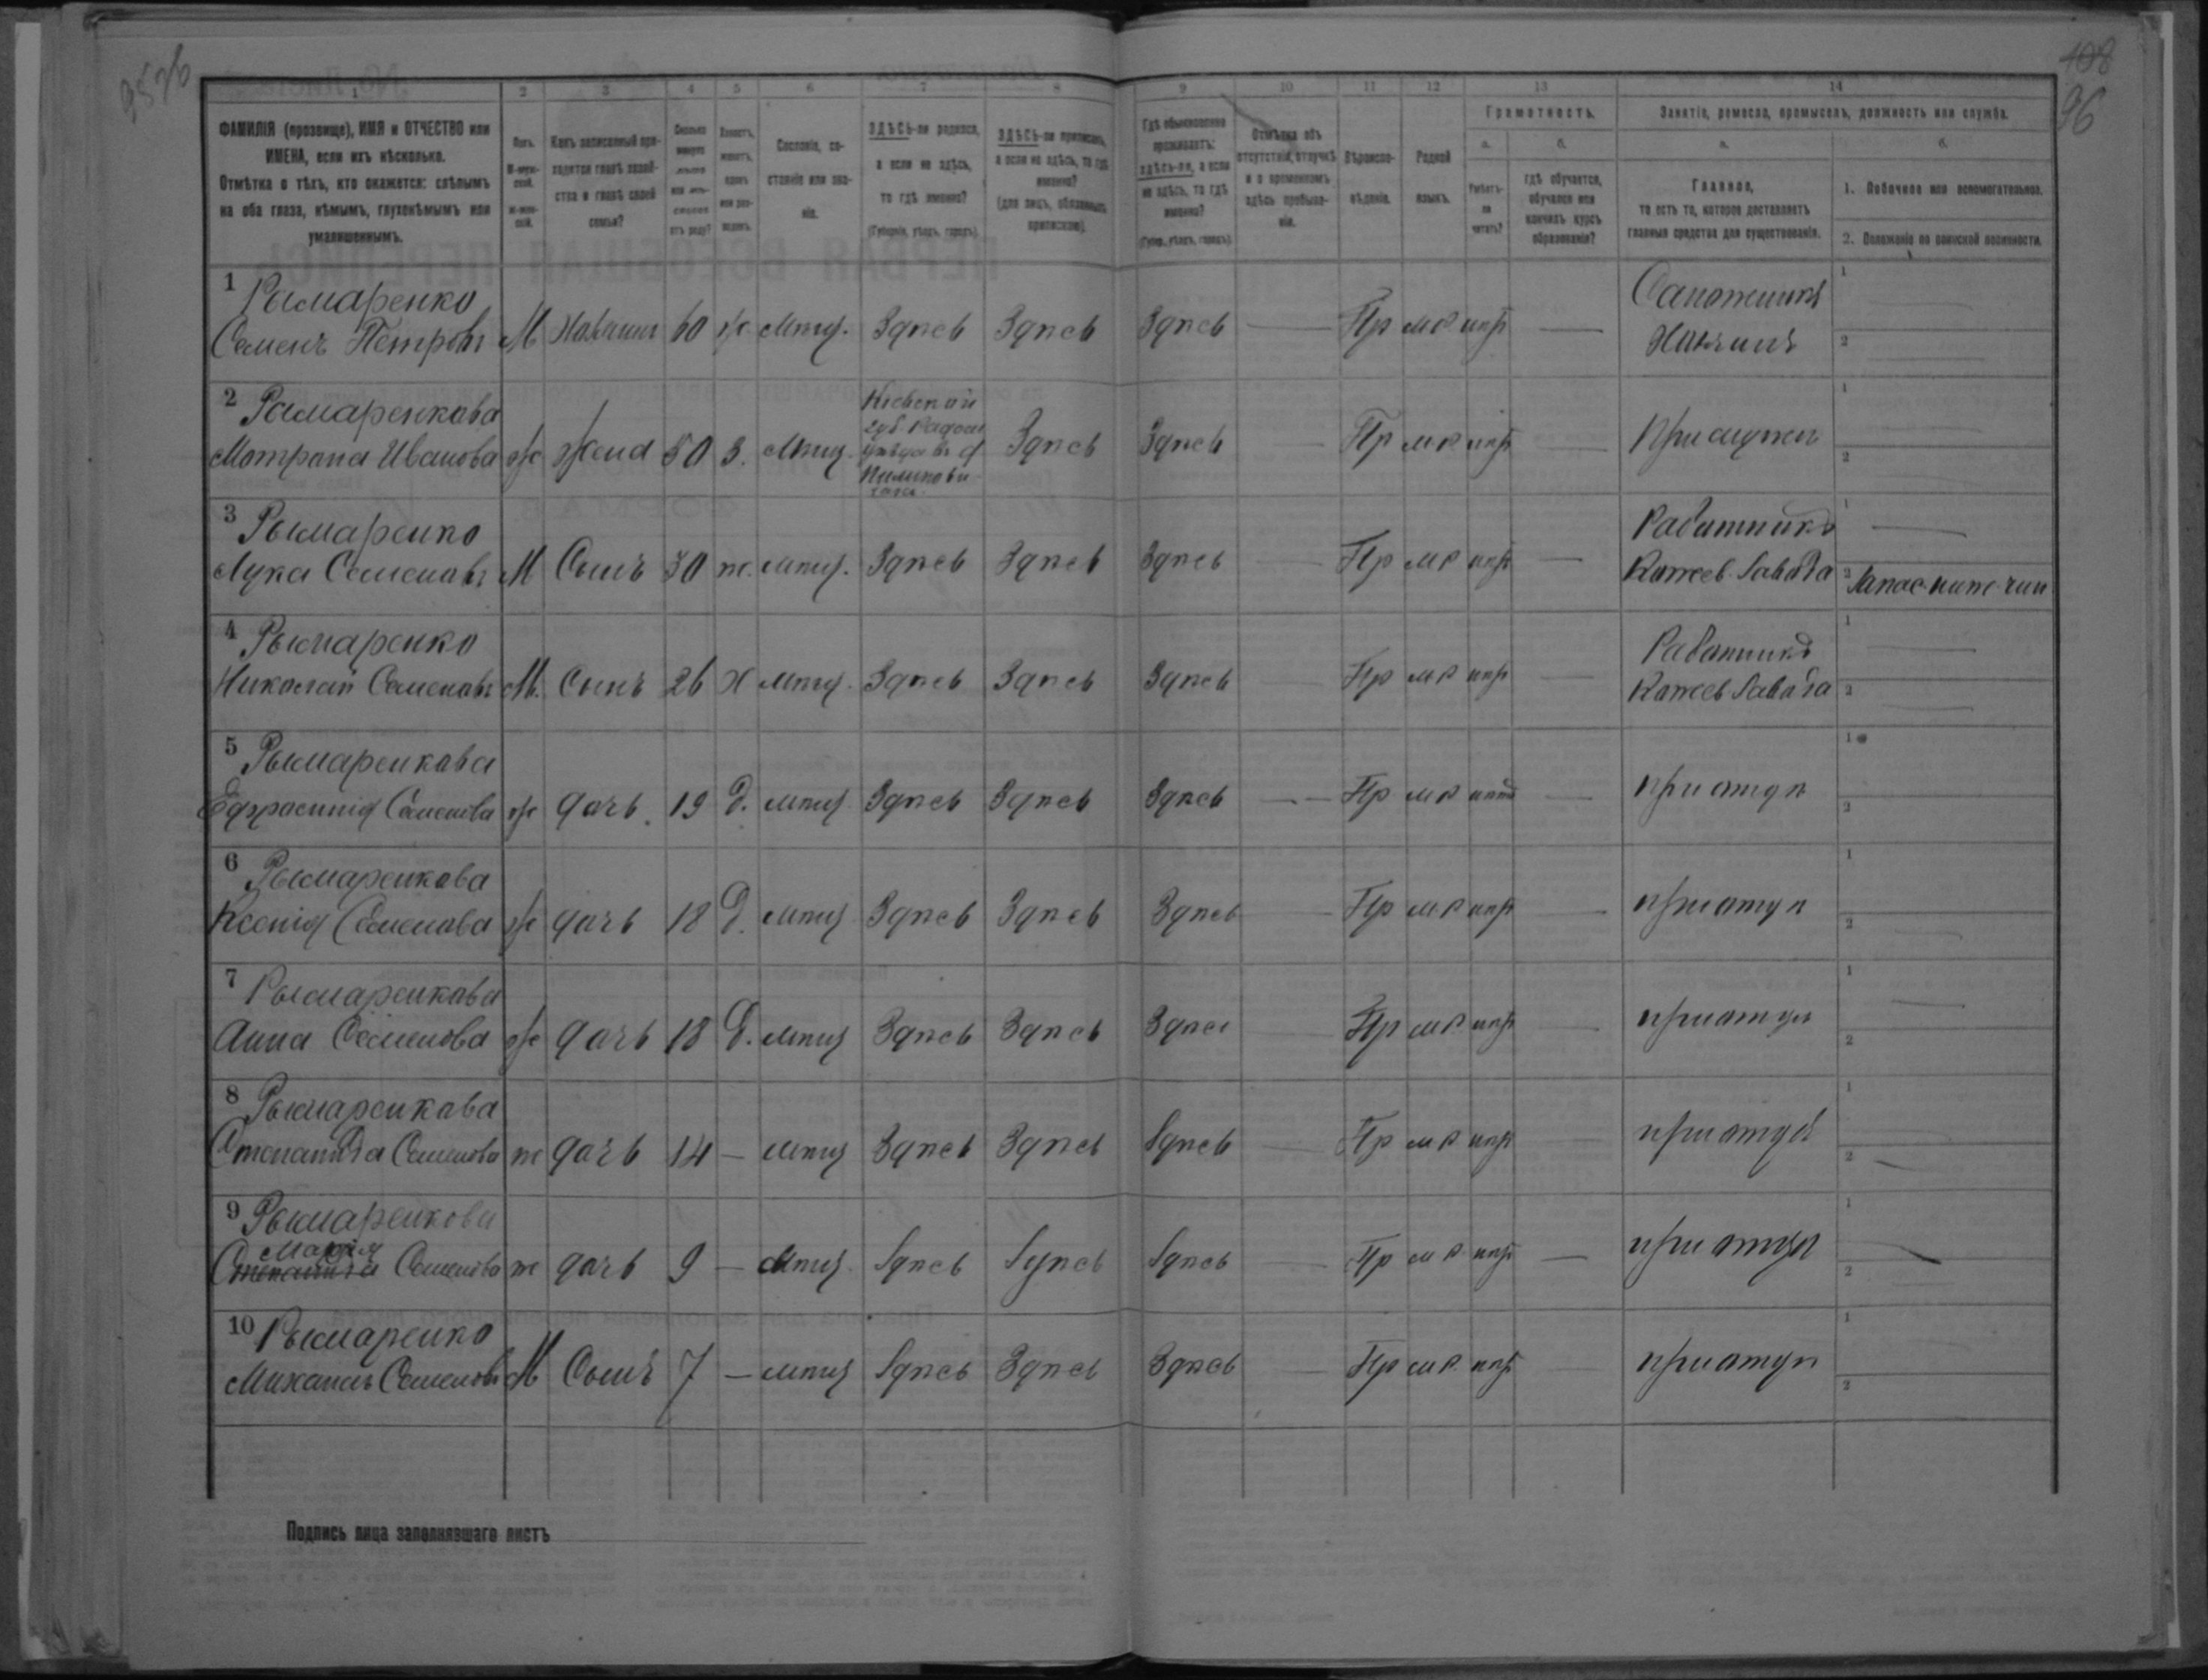 95 об
108
96
1 2 3 4 5 6 7 8 9 10 11 12 13 14
ФАМИЛІЯ (прозвище), ИМЯ и ОТЧЕСТВО или
ИМЕНА, если ихъ нѣсколько.
Отмѣтка о тѣхъ, кто окажется: слѣпымъ
на оба глаза, нѣмымъ, глухонѣмымъ или
умалишеннымъ.
Полъ.
М-муж-
ской.
ж-жен-
скій.
Какъ записанный при-
ходится главѣ хозяй-
ства и главѣ своей
семьи?
Сколько
минуло
лѣтъ
или мѣ-
сяцевъ
отъ роду?
Холостъ,
женатъ,
вдовъ
или раз-
веденъ.
Сословіе, со-
стояніе или зва-
ніе.
ЗДѢСЬ-ли родился,
а если не здѣсь,
то гдѣ именно?
(Губернія, уѣздъ, городъ).
ЗДѢСЬ-ли приписанъ,
а если не здѣсь, то гдѣ
именно?
(для лицъ, обязанныхъ
припискою).
Гдѣ обыкновенно
проживаетъ:
здѣсь-ли, а если
не здѣсь, то гдѣ
именно?
(Губер., уѣздъ, городъ).
Отмѣтка объ
отсутствіи, отлучкѣ
и о временномъ
здѣсь пребыва-
ніи.
Вѣроиспо-
вѣданіе.
Родной
языкъ.
Грамотность.
а.
Умѣетъ-
ли
читать?
б.
гдѣ обучается,
обучался или
кончилъ курсъ
образованія?
Занятіе, ремесло, промыселъ, должность или служба.
а.
Главное,
то есть то, которое доставляетъ
главныя средства для существованія.
б.
1. Побочное или вспомогательное.
2. Положеніе по воинской повинности.
1 Рымаренко
Семенъ Петровъ М Хазяинъ 60 ж мѣщ. Здѣсь Здѣсь Здѣсь — Пр м.р нѣт — Сапожникъ
Хазяинъ
2 Рымаренкова
Матрона Иванова ж Жена 50 з. Мѣщ. Кіевской
губ. Радом
уѣзда в с
Здѣсь Здѣсь — Пр м.р нѣт — При мужѣ
3 Рымаренко
Лука Семеновъ М Сынъ 30 ж. мѣщ. Здѣсь Здѣсь Здѣсь — Пр м.р нѣт — Работникъ
Кожев. Завода
Запас. ниж. чин
4 Рымаренко
Николай Семеновъ М. Сынъ 26 Х мѣщ. Здѣсь Здѣсь Здѣсь — Пр м.р нѣт — Работникъ
Кожев Завода
5 Рымаренкова
Ефросинія Семенова ж дочь. 19 д. мѣщ Здѣсь Здѣсь Здѣсь — Пр м.р нѣтъ — при отцѣ
6 Рымаренкова
Ксенія Семенова ж дочь 18 д. мѣщ Здѣсь Здѣсь Здѣсь — Пр м.р нѣт — при отцѣ
7 Рымаренкова
Анна Семенова ж дочь 18 д. мѣщ Здѣсь Здѣсь Здѣсь — Пр м.р. нѣт — при отцѣ
8 Рымаренкова
Степанида Семенова ж дочь 14 — мѣщ Здѣсь Здѣсь Здѣсь — Пр м.р нѣт — при отцѣ
9 Рымаренкова
Марія
Степанида Семенова ж дочь 9 — Мѣщ. Здѣсь Здѣсь Здѣсь — Пр м.р. нѣт — при отцѣ
10 Рымаренко
Михаилъ Семеновъ М Сынъ 7 — мѣщ Здѣсь Здѣсь Здѣсь — Пр м.р. нѣт — при отцѣ
Подпись лица заполнявшаго листъ